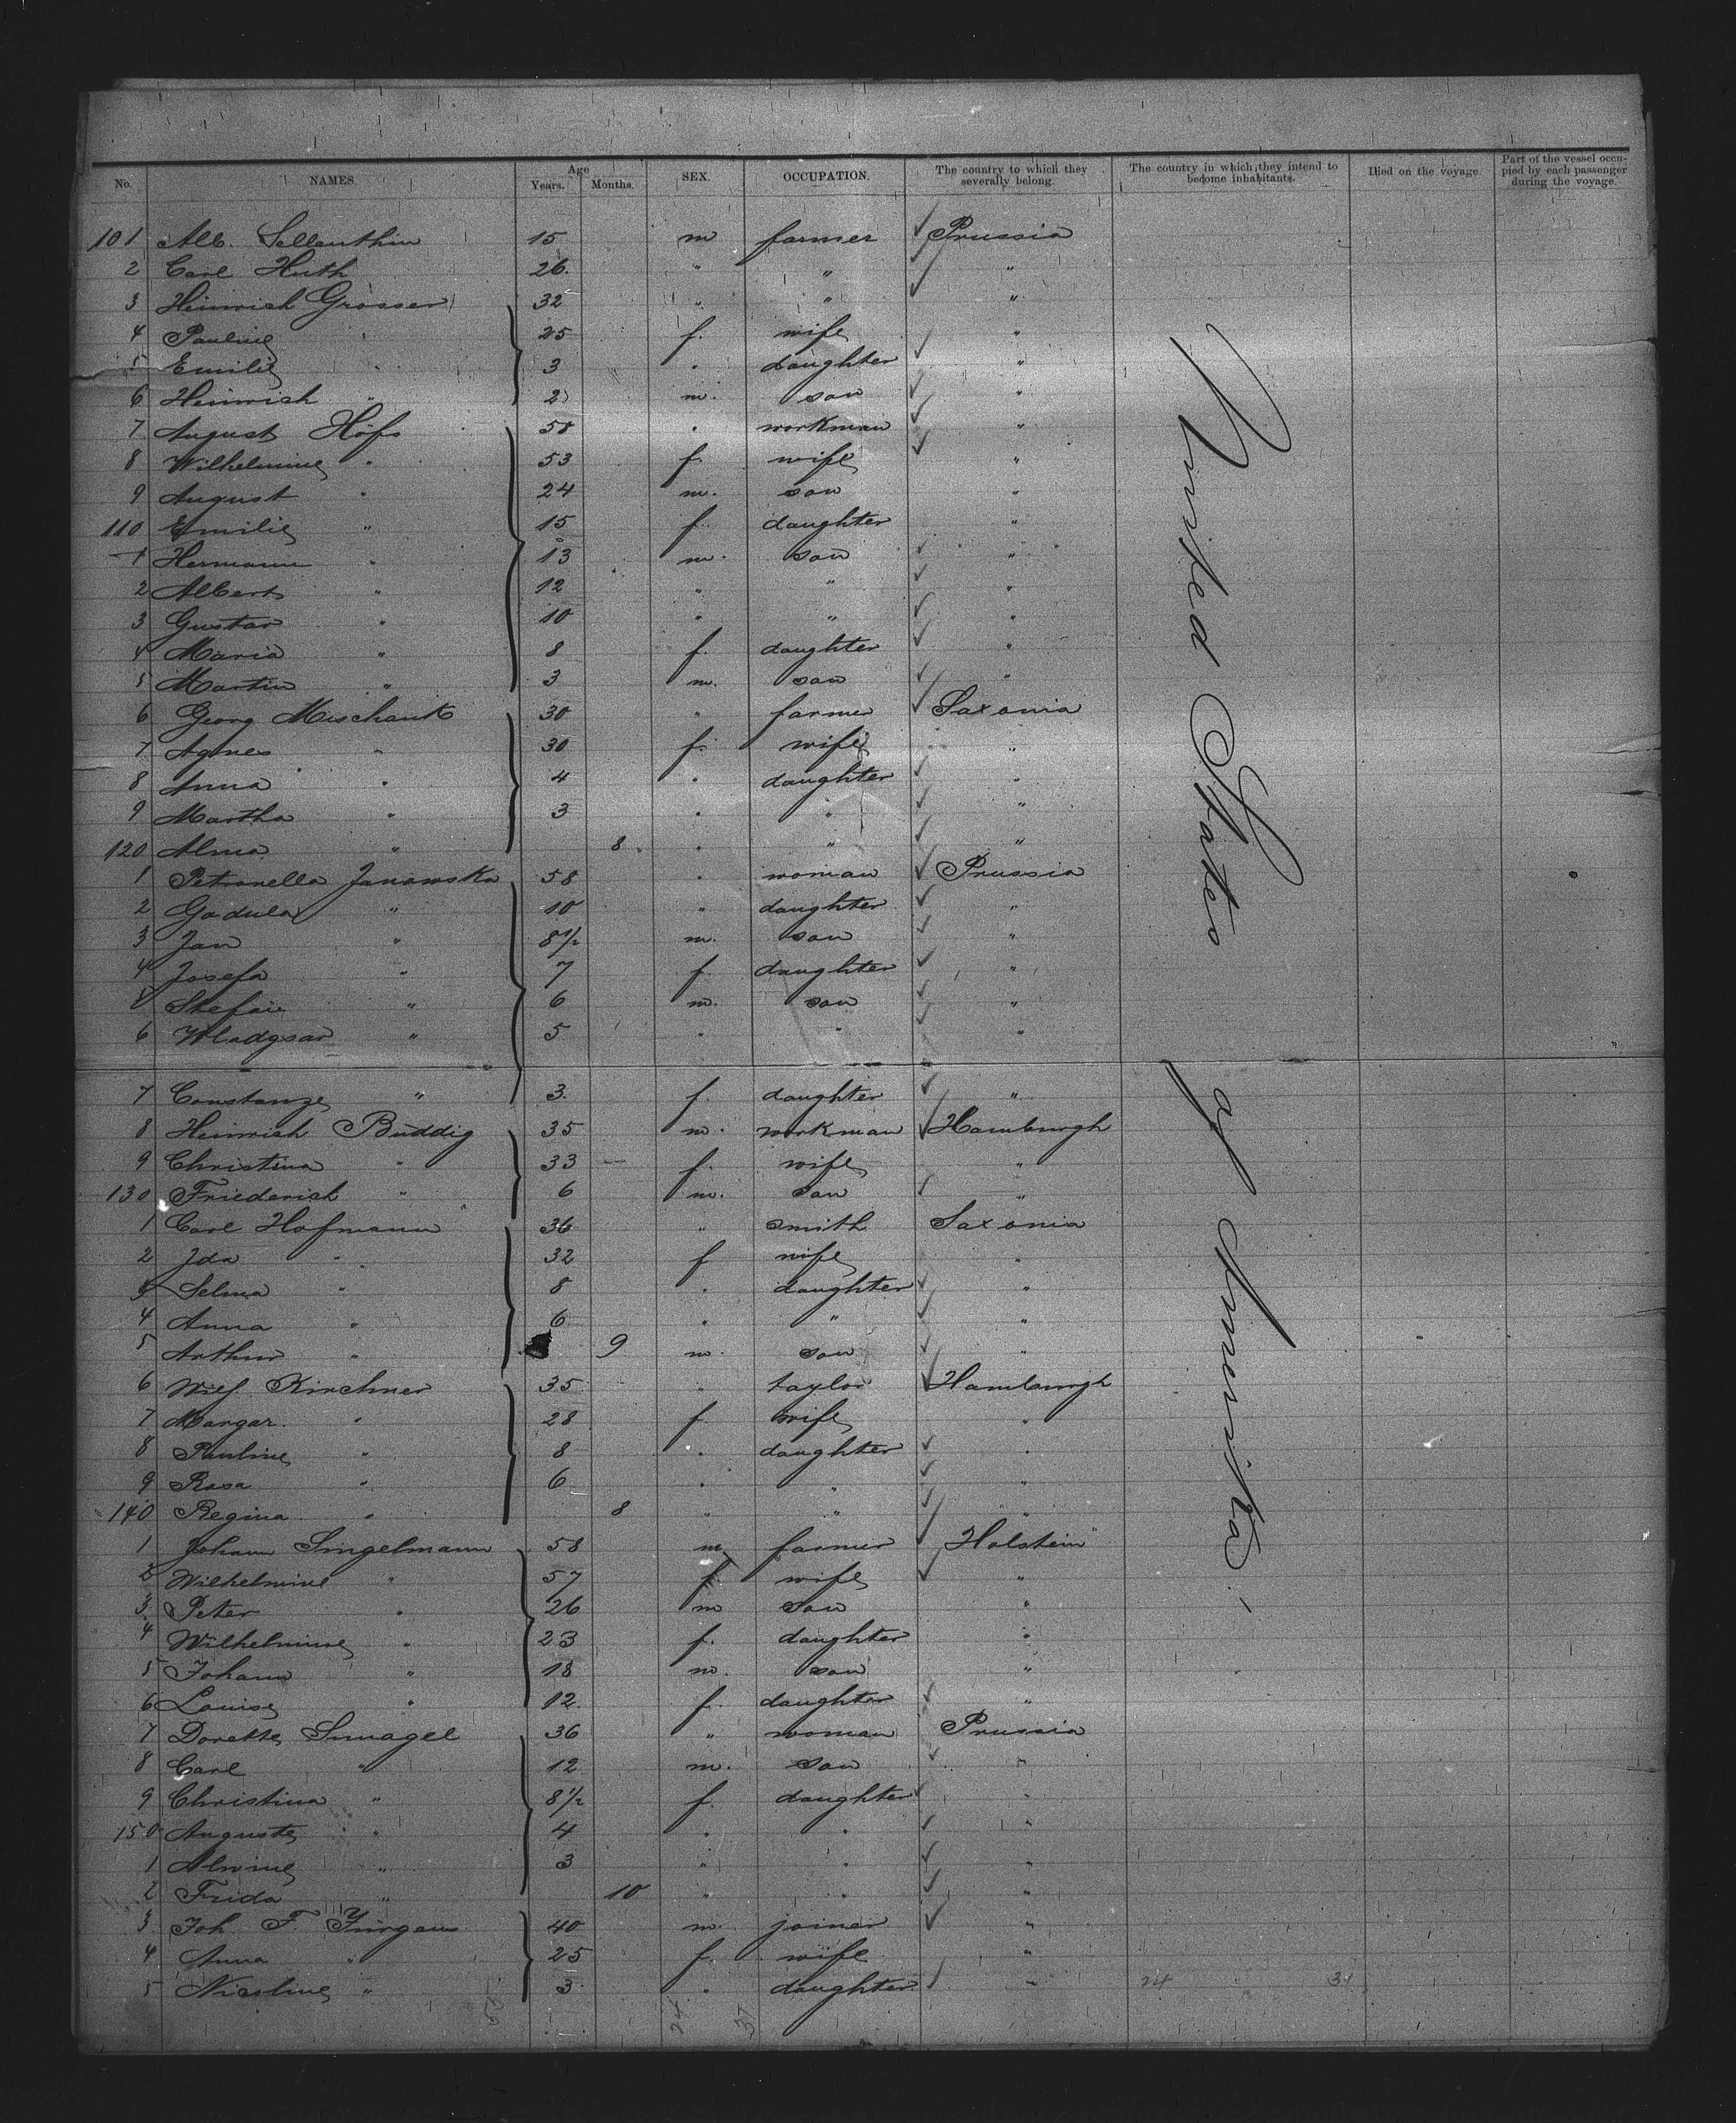 No. NAMES. Age Years. Months. SEX. OCCUPATION. The country to which they severally belong. The country in which they intend to become inhabitants. Died on the voyage. Part of the vessel occupied by each passenger during the voyage.
101 Alb. Sellenthin 15 m farmer Prussia
2 Carl Huth 26. " " "
3 Heinrich Grosser 32 " " "
4 Pauline " 25 f. wife "
5 Emilie " 3 " daughter "
6 Heinrich " 2 m. son "
7 August Höfs 58 " workman "
8 Wilhelmine " 53 f. wife "
9 August " 24 m. son "
110 Emilie " 15 f. daughter "
1 Hermann " 13 m. son "
2 Albert " 12 " " "
3 Gustav " 10 " " "
4 Maria " 8 f. daughter "
5 Martin " 3 m. son "
6 Georg Mischank 30 " farmer Saxonia
7 Agnes " 30 f. wife "
8 Anna " 4 " daughter "
9 Martha " 3 " " "
120 Alma " 8 " " "
1 Petronella Janowska 58 " woman Prussia
2 Gadula " 10 " daughter "
3 Jan " 8½ m. son "
4 Josefa " 7 f. daughter "
5 Stefan " 6 m. son "
6 Wladysar " 5 " " "
7 Constanze " 3. f. daughter "
8 Heinrich Buddig 35 m. workman Hamburgh
9 Christina " 33 f. wife "
130 Friederich " 6 m. son "
1 Carl Hofmann 36 " smith Saxonia
2 Ida " 32 f wife "
3 Selma " 8 " daughter "
4 Anna " 6 " " "
5 Arthur " 9 m. son "
6 Kirchner 35 " taylor Hamburgh
7 Margar. " 28 f. wife "
8 Pauline " 8 " daughter "
9 Rosa " 6 " " "
140 Regina " 8 " " "
1 Johann Singelmann 58 m. farmer Holstein
2 Wilhelmine " 57 f. wife "
3 Peter " 26 m son "
4 Wilhelmine " 23 f. daughter "
5 Johann " 18 m. son "
6 Louise " 12. f. daughter "
7 Dorette 36 " woman Prussia
8 Carl " 12 m. son "
9 Christina " 8½ f. daughter "
150 Auguste " 4 " " "
1 Alwine " 3 " " "
2 Frida " 10 " " "
3 Joh. F. Jürgens 40 m. joiner "
4 Anna " 25 f. wife "
5 " 3 " daughter "
24 31
24 31
United States of America